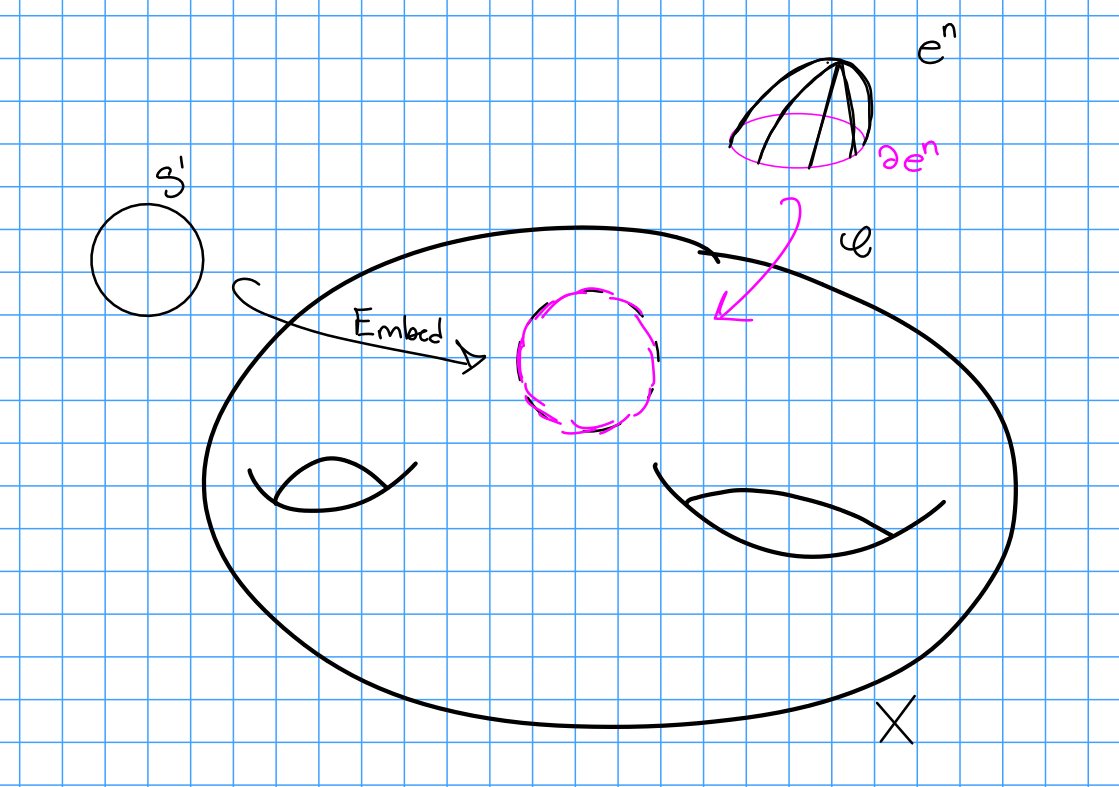 eⁿ
∂eⁿ
S¹
φ
Embed
X